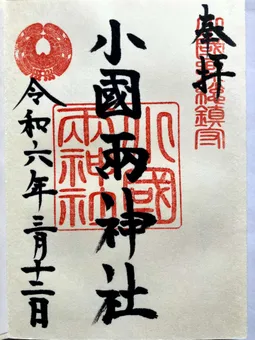 奉拝
小國兩神社
小國
兩神社
令和六年三月十二日